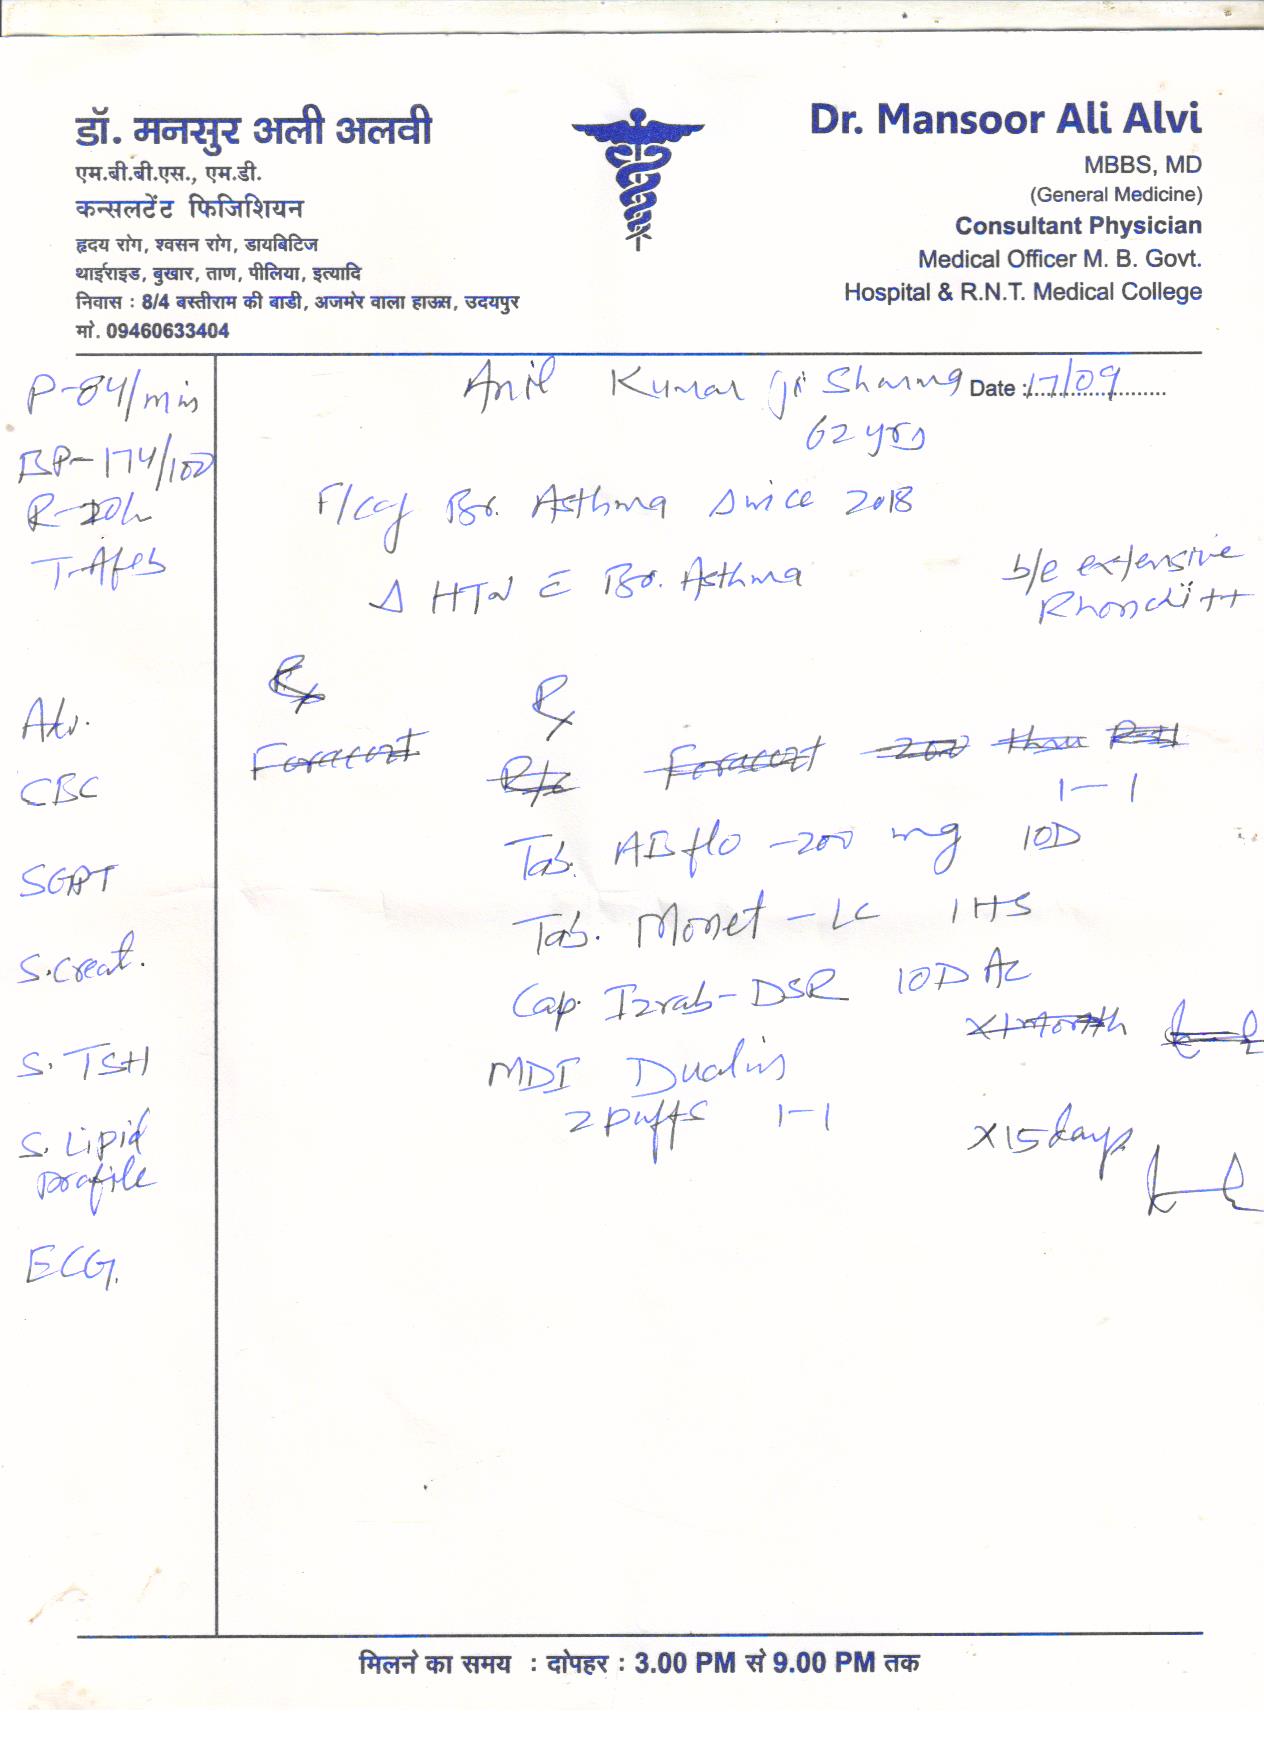 डॉ. मनसुर अली अलवी
एम.बी.बी.एस., एम.डी.
कन्सलटेंट फिजिशियन
हृदय रोग, श्वसन रोग, डायबिटिज
थाईराइड, बुखार, ताण, पीलिया, इत्यादि
निवास : 8/4 बस्तीराम की बाडी, अजमेर वाला हाउस, उदयपुर
मो. 09460633404
Dr. Mansoor Ali Alvi
MBBS, MD
(General Medicine)
Consultant Physician
Medical Officer M. B. Govt.
Hospital & R.N.T. Medical College
P-84/min
BP-174/100
R-20/
T-Afeb
Adv.
CBC
SGPT
S.Creat.
S. TSH
S. Lipid
Profile
ECG.
Anil Kumar ji Sharma Date : 17/09
62 yrs
Br. Asthma since 2018
Δ HTN c Br. Asthma
b/e extensive
Rhonchi ++
Rx
Rx
Foracort
Foracort 200
1-1
Tab. AB flo -200 mg 10D
Tab. Monet - LC 1HS
Cap. Izrab-DSR 10D AC
X1 Month
MDI
2 puffs 1-1
X 15 days
मिलने का समय : दोपहर : 3.00 PM से 9.00 PM तक